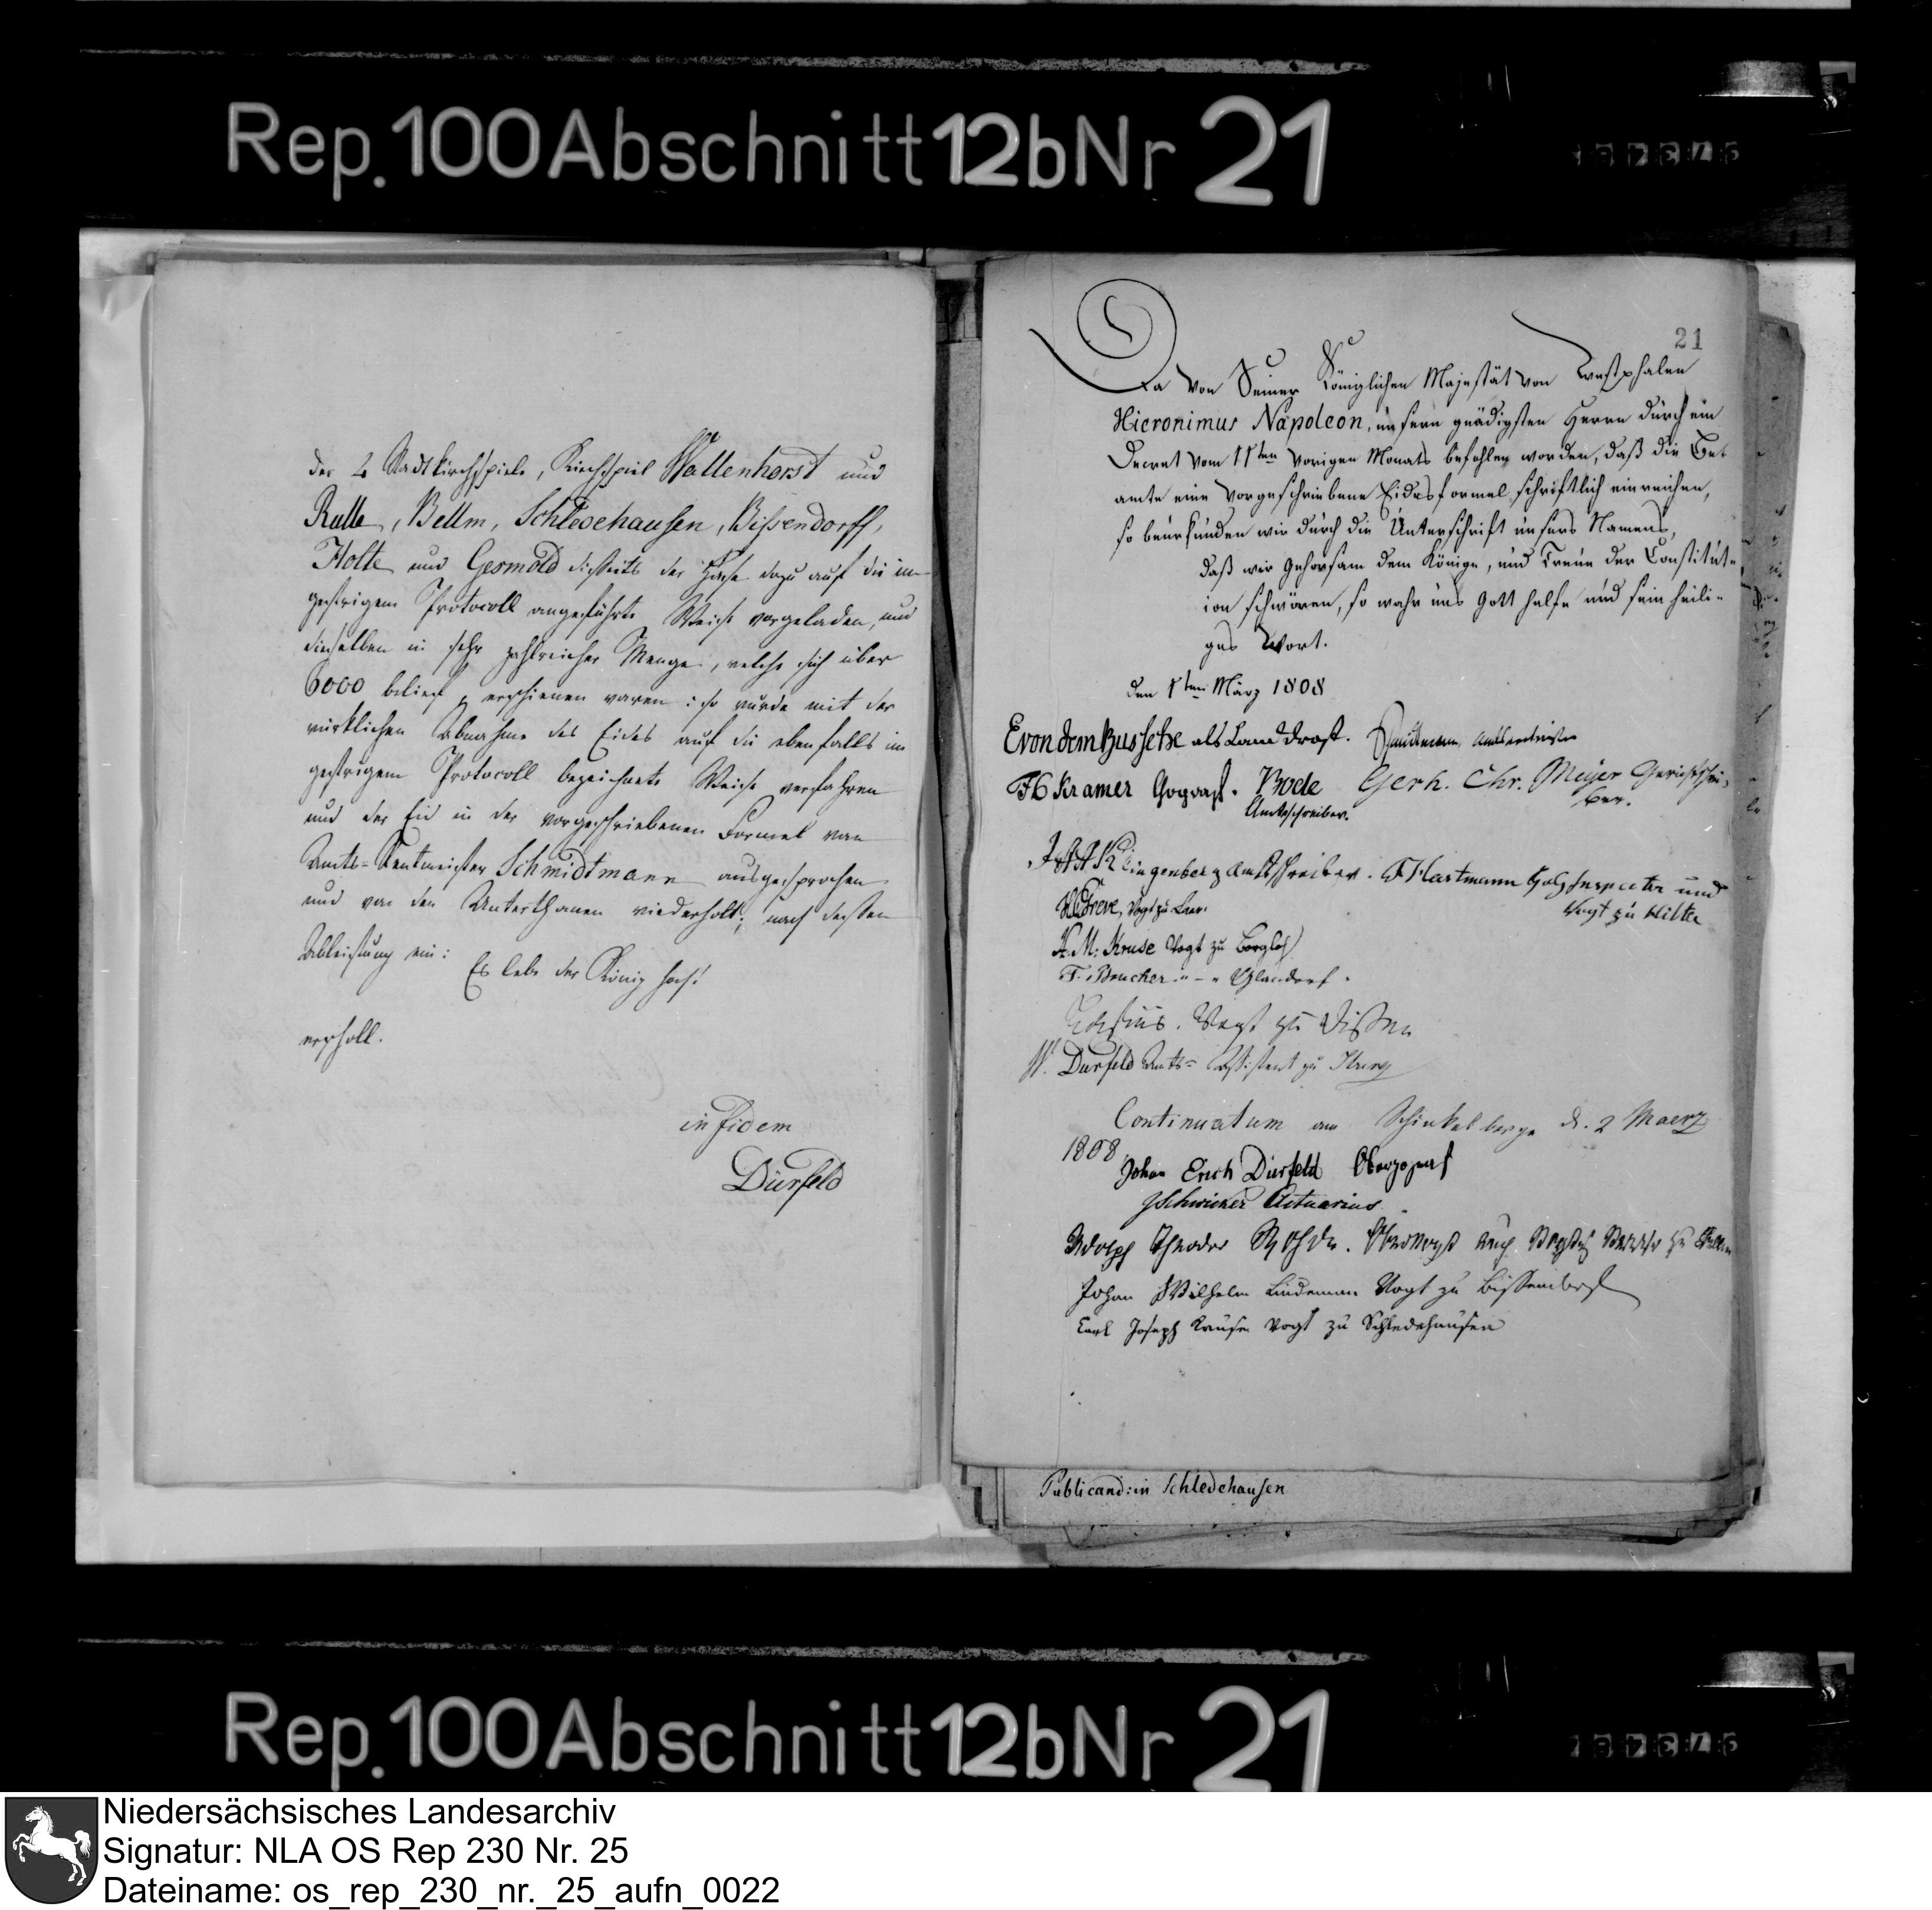 Rep. 100 Abschnitt 12b Nr 21
der 4 Stadtkirchspiele, Kirchspiel Wallenhorst und
Rulle, Bellm, Schledehausen, Bissendorff,
Holte und Gesmold disseits der Hase dazu auf die im
gestrigem Protocoll angeführte Weise vorgeladen, und
dieselben in sehr zahlreicher Menge, welche sich über
6000 belief, erschienen waren: so wurde mit der
wirklichen Abnahme des Eides auf die ebenfalls im
gestrigem Protocoll bezeichnete Weise verfahren
und der Eid in der vorgeschriebenen Formel vom
Amts-Rentmeister Schmidtmann ausgesprochen
und von den Unterthanen wiederholt; nach dessen
Ableistung ein:
Es lebe der König hoch!
erscholl.
in fidem
Dürfeld
21
Da von Seiner Königlichen Majestät von Westphalen
Hieronimus Napoleon, unsern gnädigsten Herrn durch ein
Decret vom 11ten vorigen Monats befohlen worden, daß die Be-
amte eine vorgeschriebene Eidesformel schriftlich einreichen,
so beurkunden wir durch die Unterschrift unsers Namens,
daß wir Gehorsam dem Könige, und Treue der Constitut-
ion schwören, so wahr uns Gott helfe und sein heili-
ges Wort.
den 1ten März 1808
E von dem Bussche als Landdrost. Schmidtmann, Amtsrentmeister
F C Kramer Gograf. Bode Gerh. Chr. Meyer Gerichtschrei-
Amtsschreiber. ber.
Klingenberg Amtsschreiber. F Hartmann Holz Inspector und
Vogt zu Hilter
Greve, Vogt zu Laer.
H. M. Kruse Vogt zu Borgloh
F. Brucher " - " Glandorf.
Vogt zu Dissen
W. Dürfeld Amts-Assistent zu Iburg
Continuatum am Schinkelberge d. 2 Maerz
1808
Johan Erich Dürfeld Obergograf
Schwicker Actuarius
Adolph Theodor Rohde. Obervogt auch zu Bellm
Johan Wilhelm Lindeman Vogt zu Bissendorf
Carl Joseph Krusen Vogt zu Schledehausen
Publicand: in Schledehausen
Rep. 100 Abschnitt 12b Nr 21
Niedersächsisches Landesarchiv
Signatur: NLA OS Rep 230 Nr. 25
Dateiname: os_rep_230_nr._25_aufn_0022